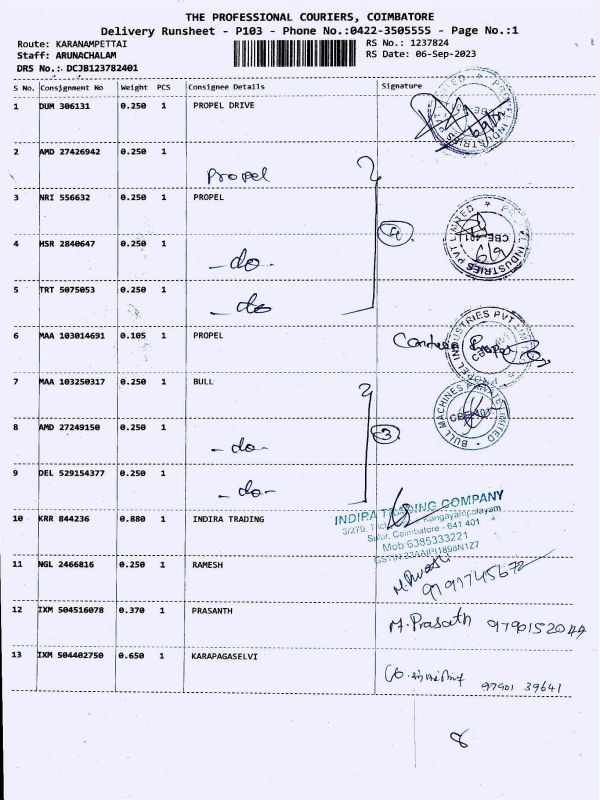 THE PROFESSIONAL COURIERS, COIMBATORE
Delivery Runsheet - P103 - Phone No.:0422-3505555 - Page No.:1
Route: KARANAMPETTAI RS No.: 1237824
Staff: ARUNACHALAM RS Date: 06-Sep-2023
DRS No.: DCJB123782401
S No. Consignment No Weight PCS Consignee Details Signature
1 DUM 306131 0.250 1 PROPEL DRIVE
2 AMD 27426942 0.250 1
Propel
3 NRI 556632 0.250 1 PROPEL
4 HSR 2840647 0.250 1
- do -
5 TRT 5075053 0.250 1
- do
6 MAA 103014691 0.105 1 PROPEL
7 MAA 103250317 0.250 1 BULL
8 AMD 27249150 0.250 1
- do -
3
9 DEL 529154377 0.250 1
- do -
10 KRR 844236 0.880 1 INDIRA TRADING
INDIRA TRADING COMPANY
Kangayampalayam
Sulur, Coimbatore - 641 401
Mob 6385333221
11 NGL 2466816 0.250 1 RAMESH
9199745672
12 IXM 504516078 0.370 1 PRASANTH
M.Prasath 9790152044
13 IXM 504402750 0.650 1 KARAPAGASELVI
97901 39641
8